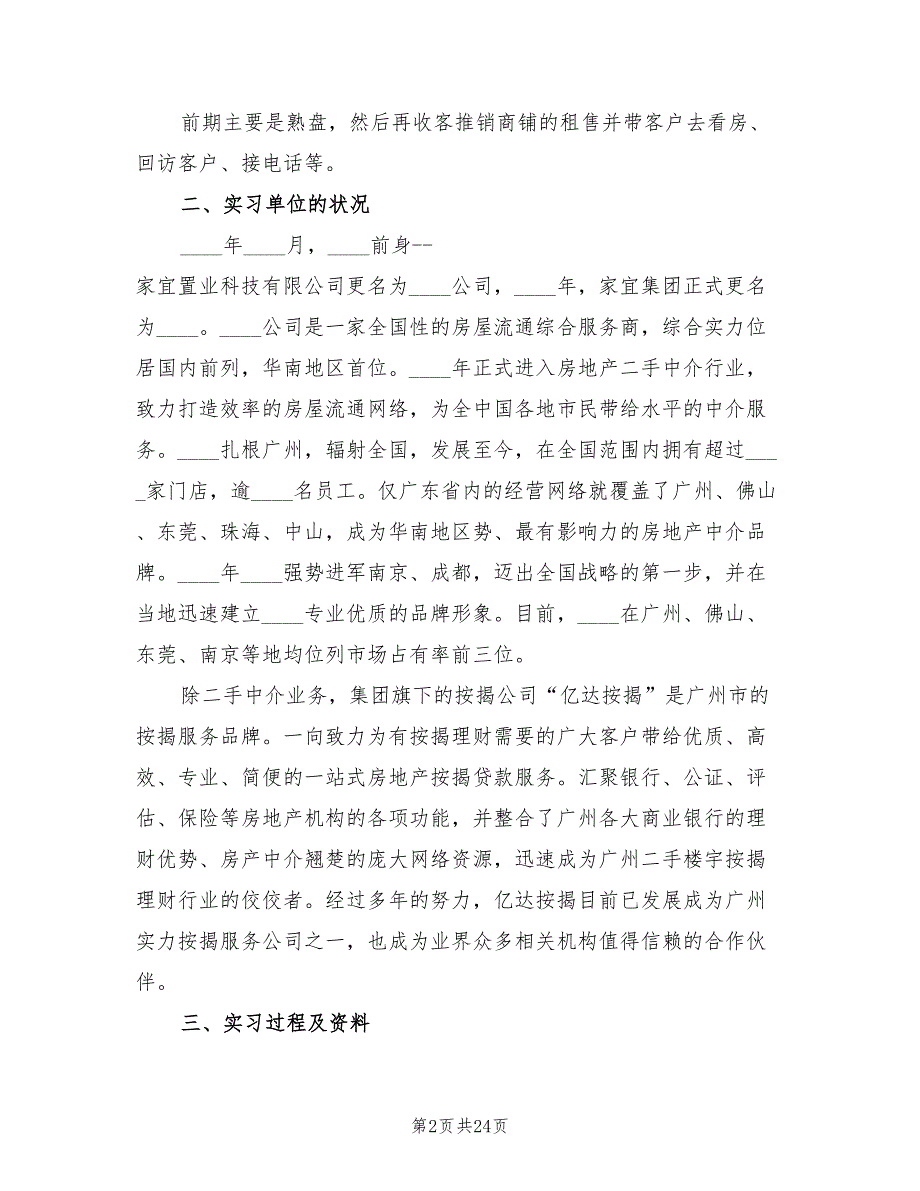 前期主要是熟盘，然后再收客推销商铺的租售并带客户去看房、
回访客户、接电话等。
二、实习单位的状况
____年____月，____前身--
家宜置业科技有限公司更名为____公司，____年，家宜集团正式更名
为____。____公司是一家全国性的房屋流通综合服务商，综合实力位
居国内前列，华南地区首位。____年正式进入房地产二手中介行业，
致力打造效率的房屋流通网络，为全中国各地市民带给水平的中介服
务。____扎根广州，辐射全国，发展至今，在全国范围内拥有超过___
_家门店，逾____名员工。仅广东省内的经营网络就覆盖了广州、佛山
、东莞、珠海、中山，成为华南地区势、最有影响力的房地产中介品
牌。____年____强势进军南京、成都，迈出全国战略的第一步，并在
当地迅速建立____专业优质的品牌形象。目前，____在广州、佛山、
东莞、南京等地均位列市场占有率前三位。
除二手中介业务，集团旗下的按揭公司“亿达按揭”是广州市的
按揭服务品牌。一向致力为有按揭理财需要的广大客户带给优质、高
效、专业、简便的一站式房地产按揭贷款服务。汇聚银行、公证、评
估、保险等房地产机构的各项功能，并整合了广州各大商业银行的理
财优势、房产中介翘楚的庞大网络资源，迅速成为广州二手楼宇按揭
理财行业的佼佼者。经过多年的努力，亿达按揭目前已发展成为广州
实力按揭服务公司之一，也成为业界众多相关机构值得信赖的合作伙
伴。
三、实习过程及资料
第2页共24页